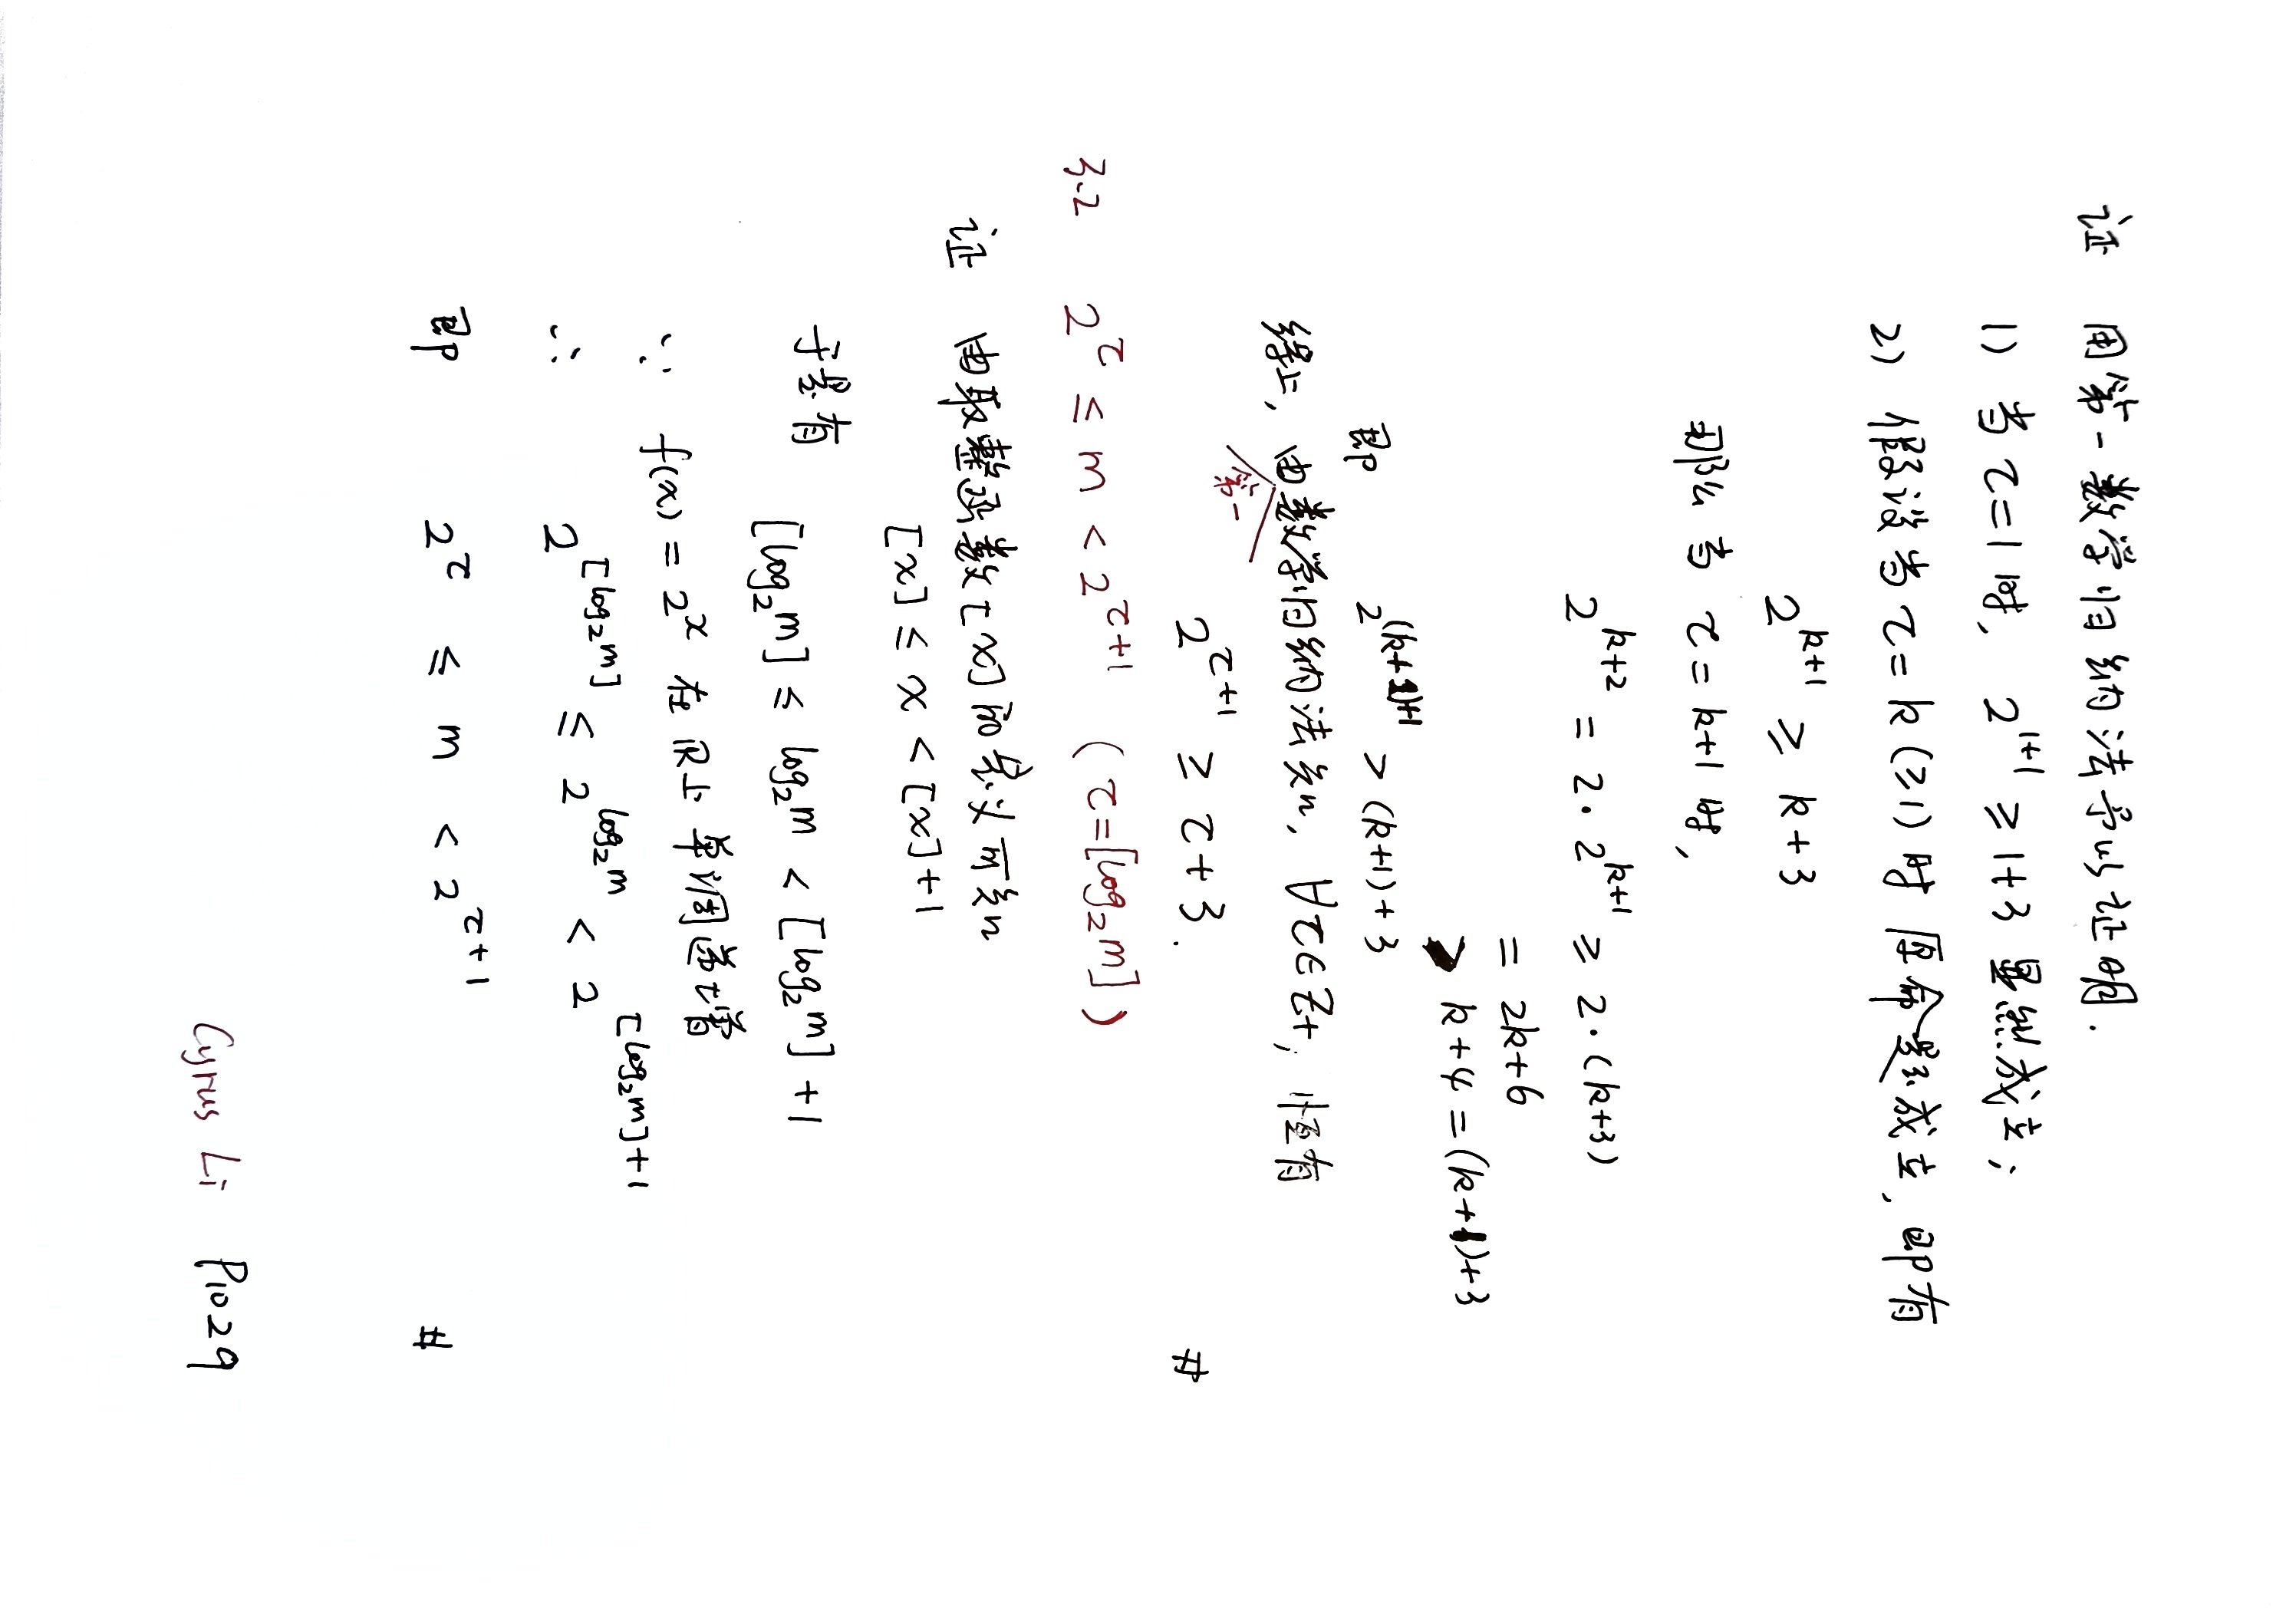 证 用第一数学归纳法予以证明.
1) 当 τ=1 时, 2^{1+1} ≥ 1+3 显然成立;
2) 假设当 τ=k (≥1) 时 原命题成立, 即有
2^{k+1} ≥ k+3
那么当 τ=k+1 时,
2^{k+2} = 2·2^{k+1} ≥ 2·(k+3)
= 2k+6
> k+4 = (k+1)+3
即 2^{(k+1)+1} > (k+1)+3
综上, 由第一数学归纳法知, ∀τ∈Z+, 恒有
2^{τ+1} ≥ τ+3. #
3.2 2^τ ≤ m < 2^{τ+1} (τ=[log₂m])
证 由取整函数[x]的定义可知
[x] ≤ x < [x]+1
于是有 [log₂m] ≤ log₂m < [log₂m]+1
∵ f(x) = 2^x 在 ℝ上 单调递增
∴ 2^{[log₂m]} ≤ 2^{log₂m} < 2^{[log₂m]+1}
即 2^τ ≤ m < 2^{τ+1} #
Cyrus Li P1029